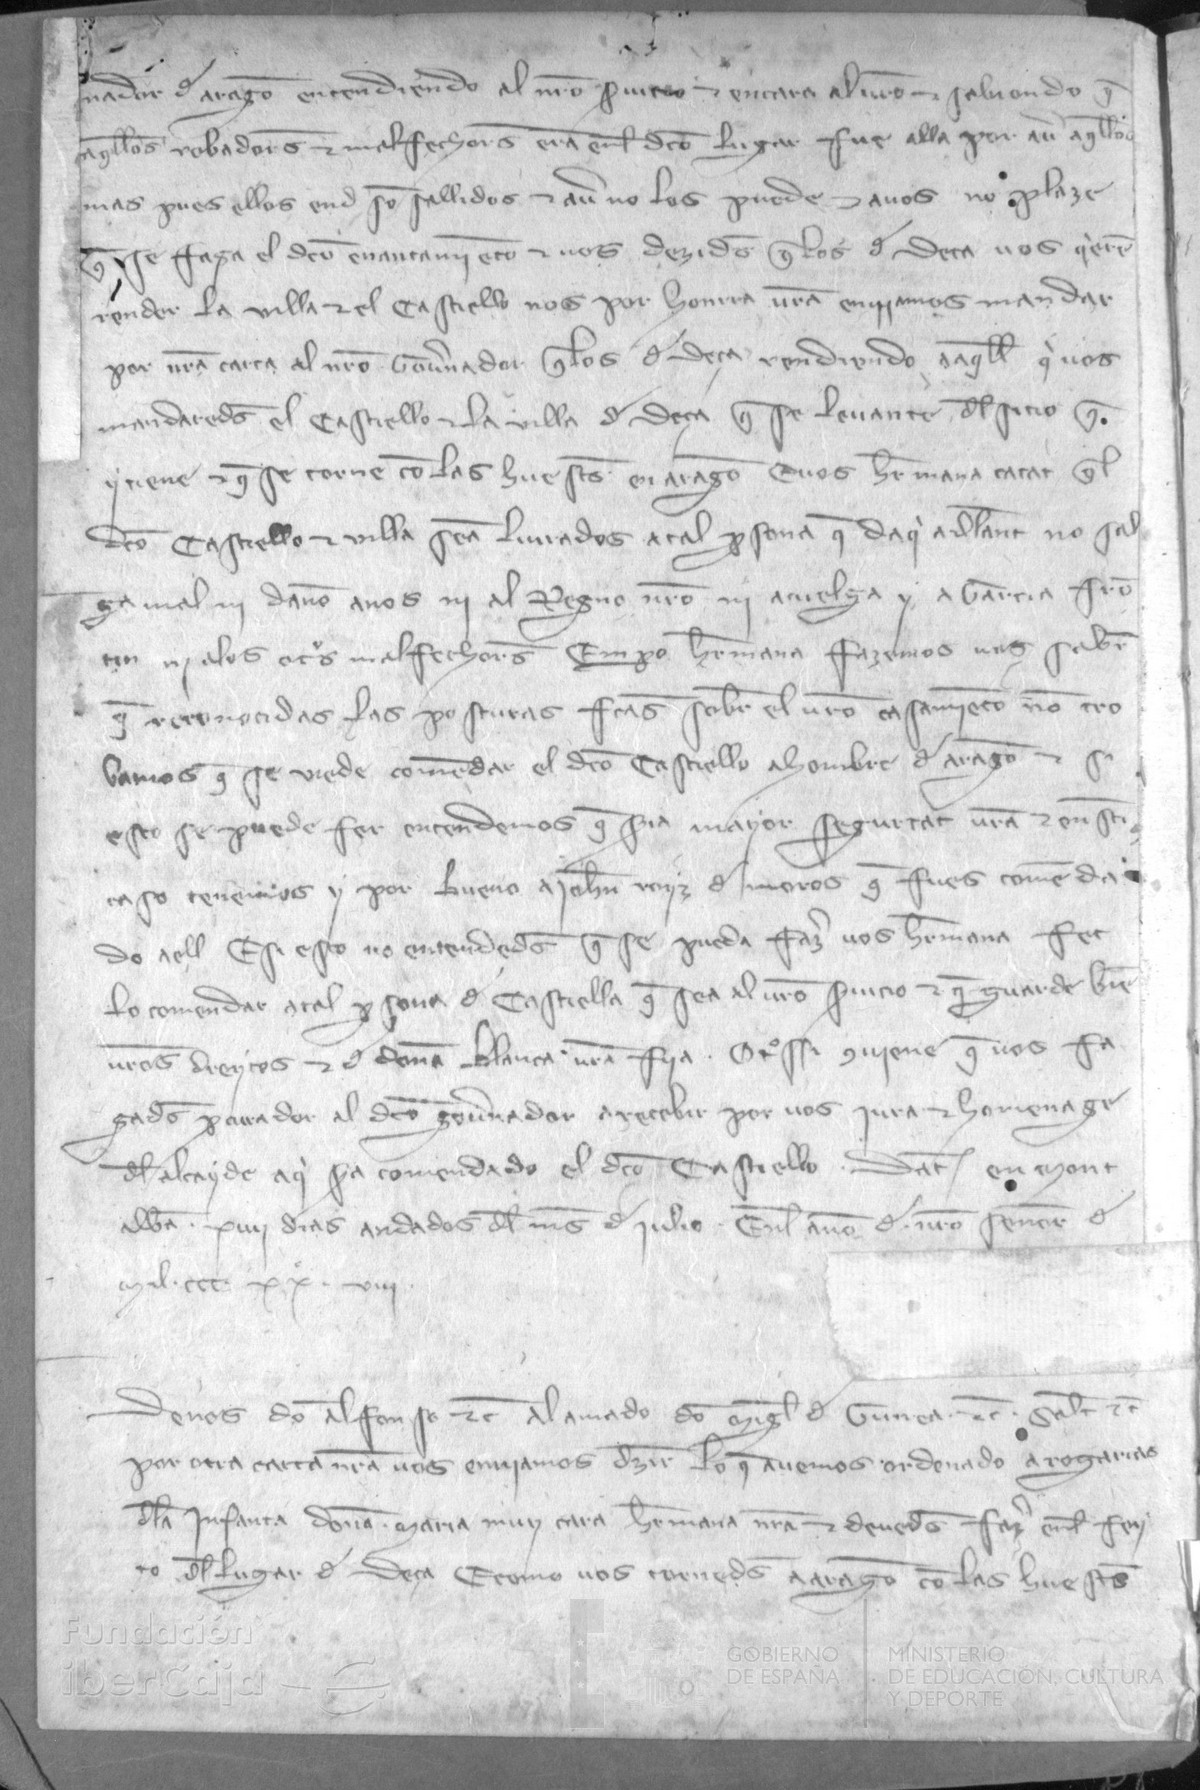 nador d' aragō entendiendo al nr̄o seruicio ⁊ encara al ur̄o ⁊ sabiendo q̄
aq̄llos robadors ⁊ malfechors eran enl dc̄o lugar fue alla por auer aq̄llos
mas pues ellos end sō sallidos ⁊ auer no los puede ⁊ auos no plaze
q̄ se faga el dc̄o enantamiēto ⁊ uos dezides q̄ los d' Deça uos q̇erē
render la villa ⁊ el Castiello nos por honrra ur̄a enuiamos mandar
por nr̄a carta al nr̄o Gouernador q̄ los d' deça rendiendo aaq̄ll q̇ uos
mandaredes el Castiello ⁊ la villa d' Deça q̄ se leuante dl sitio q̄
ytiene ⁊ q̄ se torne cō las huestes en aragō Euos her̄mana catat q̄l
dc̄o Castiello ⁊ villa seā liurados atal p̱sona q̄ daq̇ adelant no sal
ga mal ni dan̄o auos ni al Regno nr̄o ni acuelga y a Garcia
ni alos otr̄s malfechors Empo her̄mana fazemos uos saber
q̄ reconocidas las posturas fc̄as sobre el ur̄o casamiēto nō tro
bamos q̄ se viede comēdar el dc̄o Castiello a hombre d' aragō ⁊ si
esto se puede fer entendemos q̄ sria mayor segurtat ur̄a ⁊ en esti
caso tenemos y por bueno a Joh̄n royz d' moros q̄ fues comēda
do aell Esi esto no entendedes q̄ se pueda faz̄ uos her̄mana fet
lo comendar atal p̱sona d' Castiella q̄ sea al ur̄o seruicio ⁊ q̄ guarde biē
ur̄os dreytos ⁊ d' don̄a Blanca ur̄a fija . Otrossi 9uiene q̄ uos fa
gades p̱curador al dc̄o gouernador a recebir por uos jura ⁊ homenage
dl alcayde aq̇ sra comendado el dc̄o Castiello . Dat̄ en mont
albā . xiiij dias andados dl mes d' julio . Enl an̄o d' nr̄o sen̄or d'
Mil . ccc xx . viii .
Denos dō Alfonso ⁊c̄ Al amado dō Migl d' Gurrea ⁊c̄ . Salt̄ ⁊c̄
por otra carta nr̄a uos enuiamos dezir lo q̄ auemos ordenado a rogarias
dla Infanta don̄a Maria muy cara her̄mana nr̄a ⁊ deuedes faz̄ enl fey
to dl lugar d' Deça Ecomo uos tornedes a aragō cō las huestes
Fundación
iberCaja
GOBIERNO
DE ESPAÑA
MINISTERIO
DE EDUCACIÓN, CULTURA
Y DEPORTE